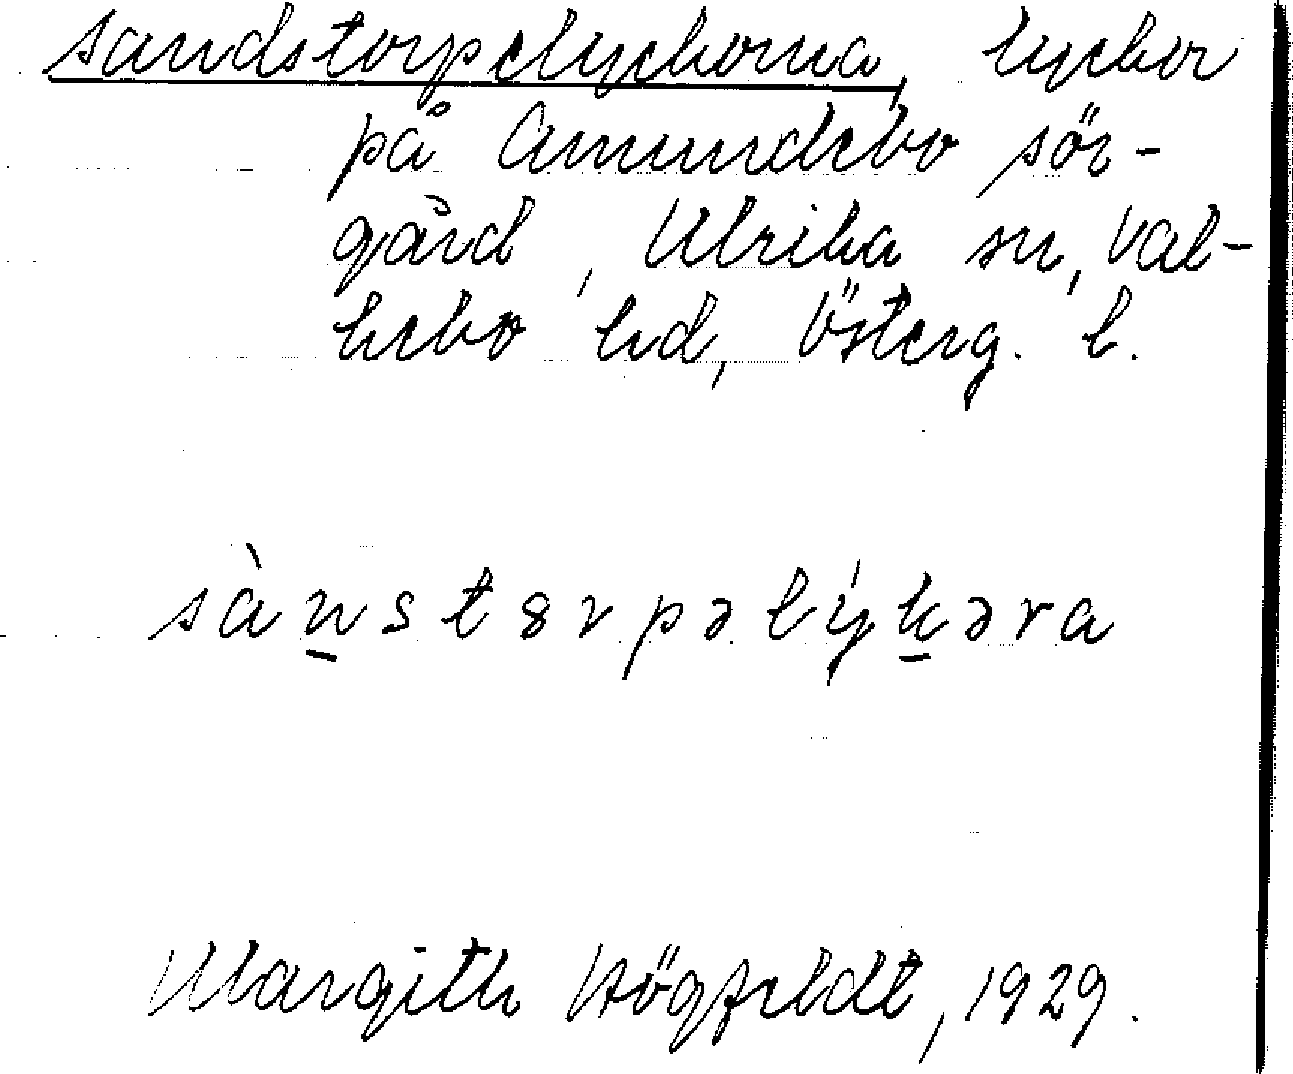 Sandstorpelyckorna, lyckor
på Amundebo sör-
gård, Ulrika sn, Val-
kebo hd, Österg. l.
sàn̲stɞrpəlýk̲əra
Margith Högfeldt, 1929.